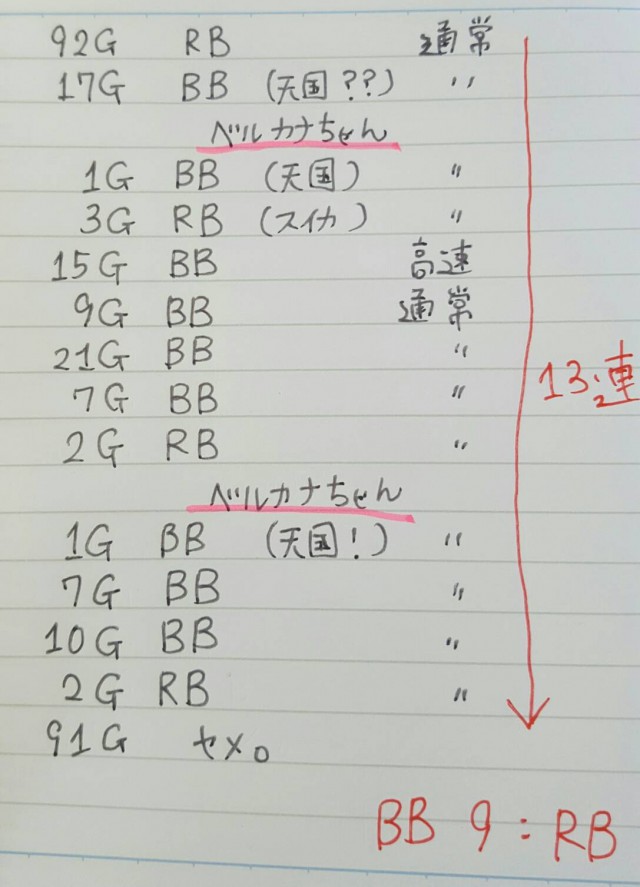 92G RB 通常
17G BB (天国??) 〃
ベルカナちゃん
1G BB (天国) 〃
3G RB (スイカ) 〃
15G BB 高速
9G BB 通常
21G BB 〃
7G BB 〃
2G RB 〃
13連
ベルカナちゃん
1G BB (天国!) 〃
7G BB 〃
10G BB 〃
2G RB 〃
91G ヤメ。
BB 9:RB